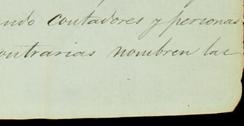 ndo contadores y personas
ontrarias nombren las